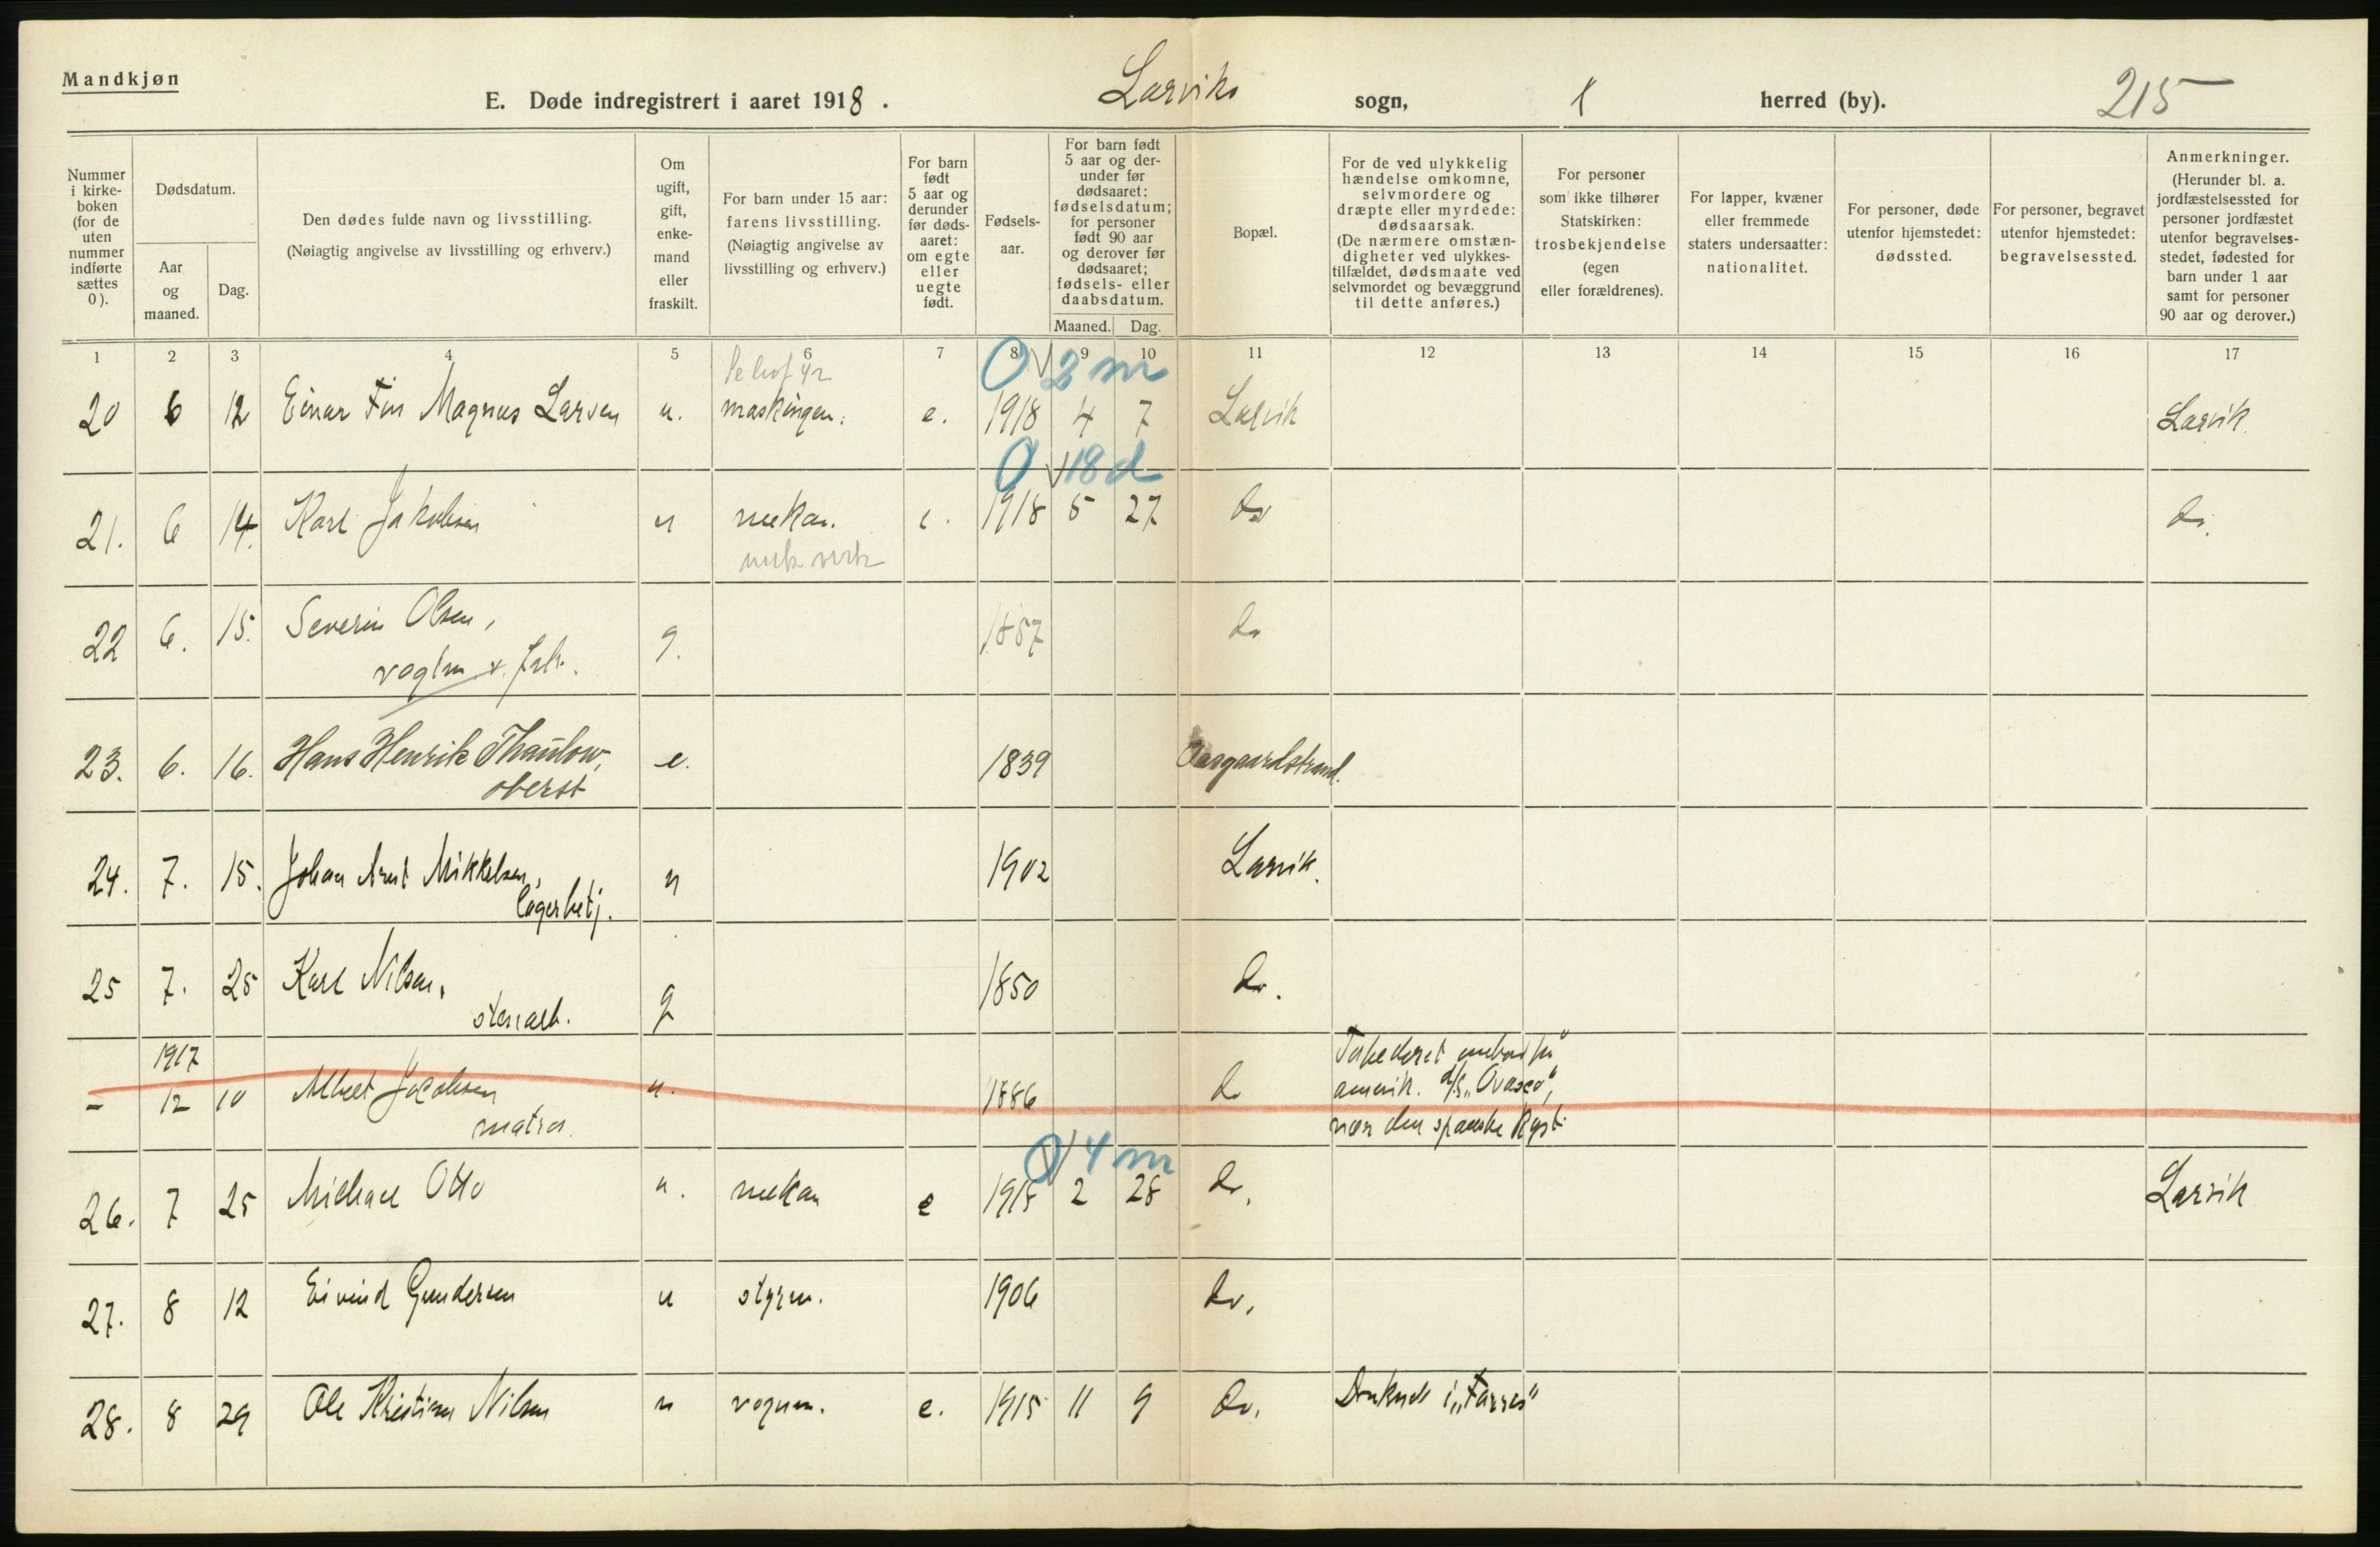 Mandkjøn
E. Døde indregistrert i aaret 1918.
Larviks sogn, herred (by).
215
Nummer i kirkeboken (for de uten nummer indførte sættes 0).
Dødsdatum.
Aar og maaned.
Dag.
Den dødes fulde navn og livsstilling.
(Nøiagtig angivelse av livsstilling og erhverv.)
Om ugift, gift, enkemand eller fraskilt.
For barn under 15 aar: farens livsstilling. (Nøiagtig angivelse av livsstilling og erhverv.)
For barn født 5 aar og derunder før dødsaaret: om egte eller uegte født.
Fødselsaar.
For barn født 5 aar og derunder før dødsaaret: fødselsdatum; for personer født 90 aar og derover før dødsaaret; fødsels- eller daabsdatum.
Maaned. Dag.
Bopæl.
For de ved ulykkelig hændelse omkomne, selvmordere og dræpte eller myrdede: dødsaarsak. (De nærmere omstændigheter ved ulykkestilfældet, dødsmaate ved selvmordet og bevæggrund til dette anføres.)
For personer som ikke tilhører Statskirken: trosbekjendelse (egen eller forældrenes).
For lapper, kvæner eller fremmede staters undersaatter: nationalitet.
For personer, døde utenfor hjemstedet: dødssted.
For personer, begravet utenfor hjemstedet: begravelsessted.
Anmerkninger. (Herunder bl. a. jordfæstelsessted for personer jordfæstet utenfor begravelsesstedet, fødested for barn under 1 aar samt for personer 90 aar og derover.)
1 2 3 4 5 6 7 8 9 10 11 12 13 14 15 16 17
0 2 m
20 6 12 Einar Fin Magnus Larsen u. maskingen. e. 1918 4 7 Larvik Larvik
0 18 d
21. 6 14. Karl Jakobsen u mekan. e. 1918 5 27 do do.
mek verk
22 6. 15. Severin Olsen, g. 1857 do
vogtm
23. 6. 16. Hans Henrik Thaulow, e. 1839 Aasgaardstrand.
oberst
24. 7. 15. Johan Arnt Mikkelsen, u 1902 Larvik.
lagerbetj.
25 7. 25 Karl Nilsen, g 1850 do.
stenarb.
1917
- 12 10 Albert Jacobsen u. 1886 do Torpederet ombord paa
matros. amerik. d/s "Ovasco",
nær den spanske kyst.
0 4 m
26. 7 25 Michael Otto u. mekan e 1918 2 28 do. Larvik
27. 8 12 Eivind Gundersen u styrm. 1906 do.
28. 8 29 Ole Kristian Nilsen u vognm. e. 1915 11 9 do. Druknet i "Farres"